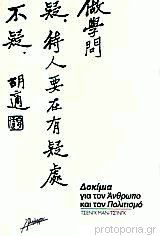 做學問
疑.待人要在有疑處
不疑.
胡適
Δοκίμια
για τον Άνθρωπο
και τον Πολιτισμό
ΤΣΕΝΓΚ ΜΑΝ-ΤΣΙΝΓΚ
protoporia.gr